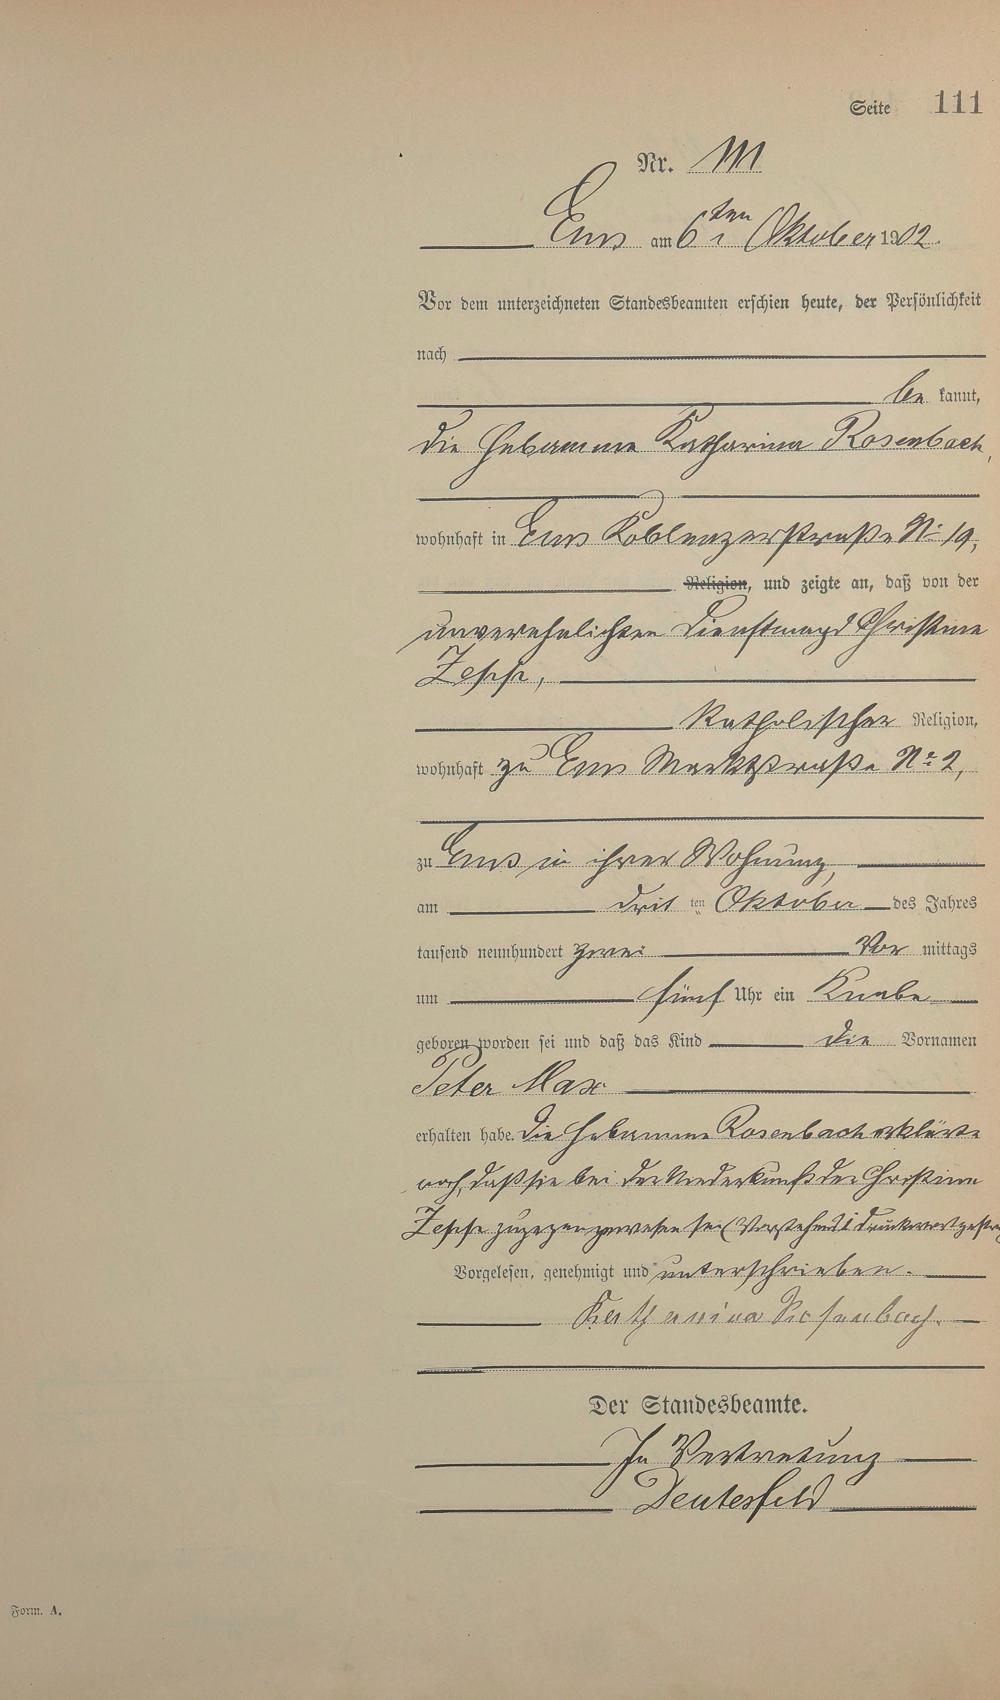 Seite 111
Nr. 111
Ems am 6ten Oktober 1902.
Vor dem unterzeichneten Standesbeamten erschien heute, der Persönlichkeit
nach
be kannt,
die Hebamme Katharina Rosenbach,
wohnhaft in Ems Koblenzerstraße No 19,
Religion, und zeigte an, daß von der
unverehelichten Dienstmagd Christine
Zeppe,
katholischer Religion,
wohnhaft zu Ems Marktstraße No 2,
zu Ems in ihrer Wohnung,
am drit ten Oktober des Jahres
tausend neunhundert zwei Vor mittags
um fünf Uhr ein Knabe
geboren worden sei und daß das Kind die Vornamen
Peter Max
erhalten habe. Die Hebamme Rosenbach erklärte
noch, daß sie bei der Niederkunft der Christine
Zeppe zugegen gewesen sei (Vorstehend 1 Druckwort
Vorgelesen, genehmigt und unterschrieben.
Katharina Rosenbach.
Der Standesbeamte.
In Vertretung
Deutesfeld
Form. A.